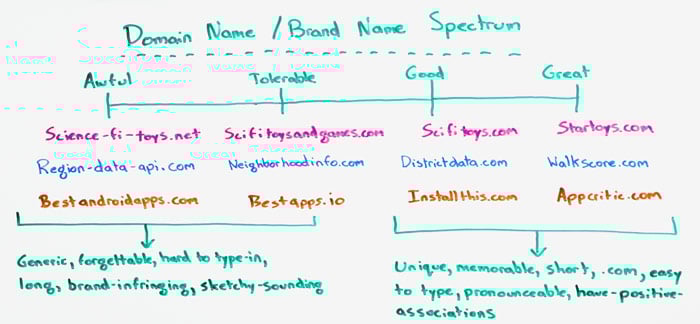 Domain Name / Brand Name Spectrum
Awful Tolerable Good Great
Science-fi-toys.net Scifitoysandgames.com Scifitoys.com Startoys.com
Region-data-api.com Neighborhoodinfo.com Districtdata.com Walkscore.com
Bestandroidapps.com Bestapps.io Installthis.com Appcritic.com
Generic, forgettable, hard to type-in,
long, brand-infringing, sketchy-sounding
Unique, memorable, short, .com, easy
to type, pronounceable, have-positive-
associations